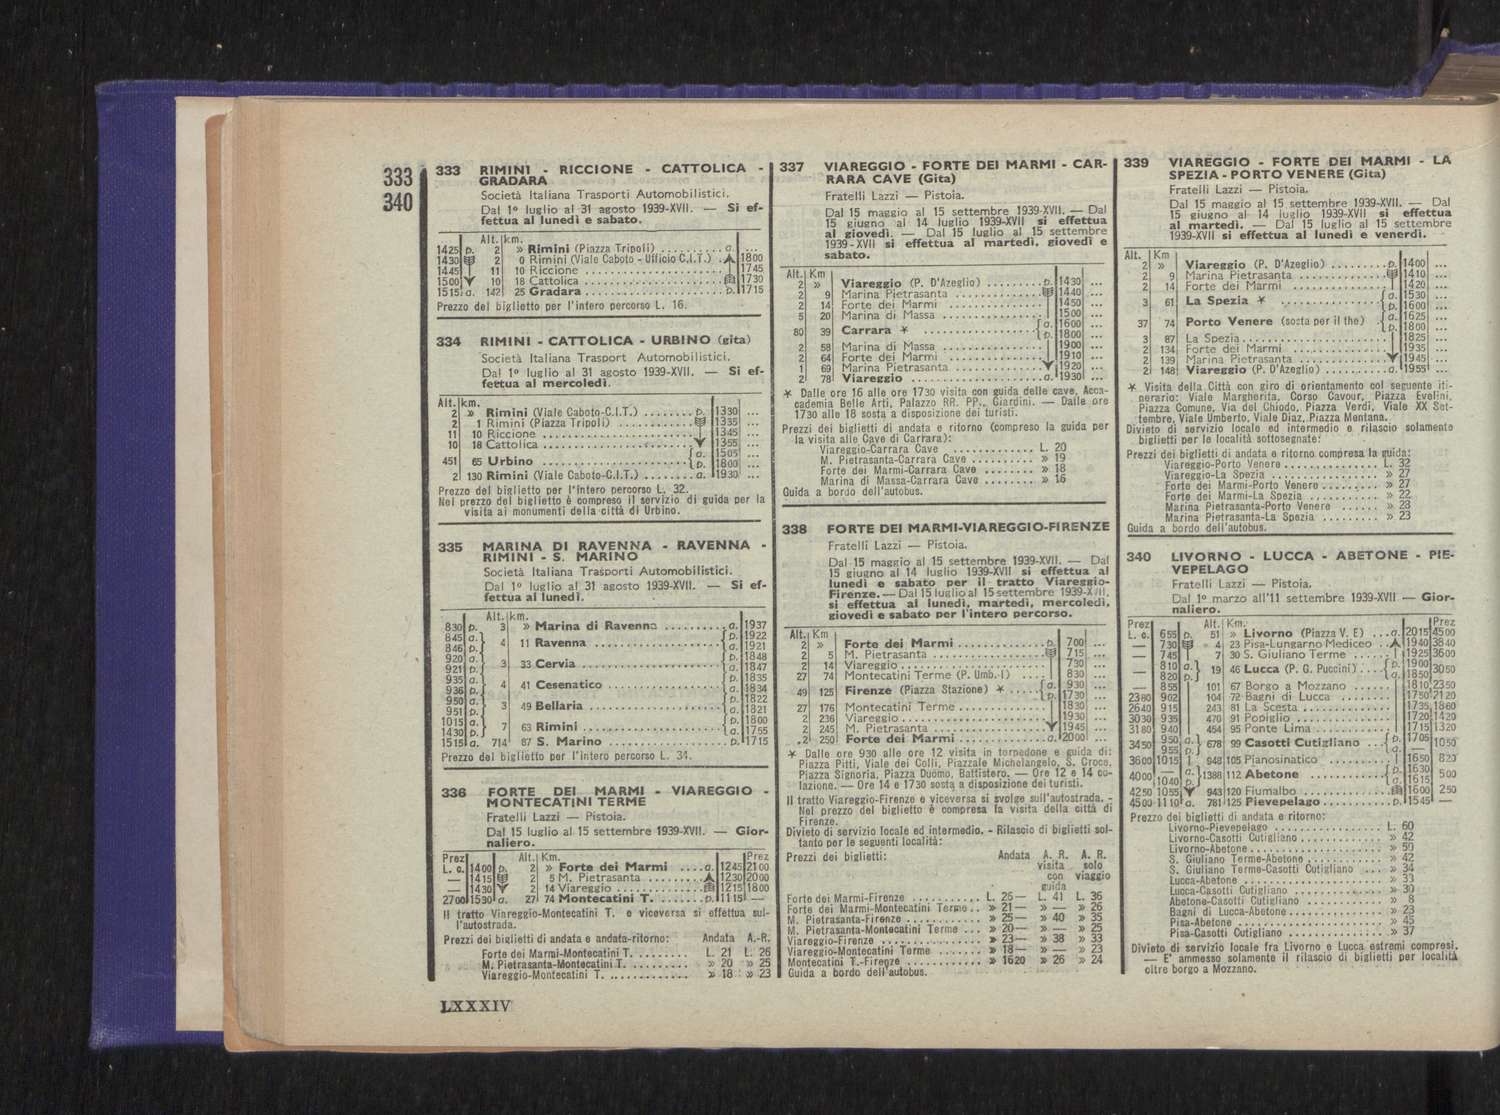 333
340
333 RIMINI - RICCIONE - CATTOLICA -
GRADARA
Società Italiana Trasporti Automobilistici.
Dal 1º luglio al 31 agosto 1939-XVII. — Si ef-
fettua al lunedì e sabato.
Alt. km.
1425 p. 2 » Rimini (Piazza Tripoli) .......... a. ...
1430 2 0 Rimini (Viale Caboto - Ufficio C.I.T.) . 1800
1445 11 10 Riccione .................... 1745
1500 10 18 Cattolica .................... 1730
1515 a. 142 25 Gradara .................... p. 1715
Prezzo del biglietto per l'intero percorso L. 16.
334 RIMINI - CATTOLICA - URBINO (gita)
Società Italiana Trasport Automobilistici.
Dal 1º luglio al 31 agosto 1939-XVII. — Si ef-
fettua al mercoledì.
Alt. km.
2 » Rimini (Viale Caboto-C.I.T.) ........ p. 1330 ...
2 1 Rimini (Piazza Tripoli) ............ 1335 ...
11 10 Riccione .................... 1345 ...
10 18 Cattolica .................... 1355 ...
451 65 Urbino .................... { a. 1505 ...
p. 1800 ...
2 130 Rimini (Viale Caboto-C.I.T.) ........ a. 1930 ...
Prezzo del biglietto per l'intero percorso L. 32.
Nel prezzo del biglietto è compreso il servizio di guida per la
visita ai monumenti della città di Urbino.
335 MARINA DI RAVENNA - RAVENNA -
RIMINI - S. MARINO
Società Italiana Trasporti Automobilistici.
Dal 1º luglio al 31 agosto 1939-XVII. — Si ef-
fettua al lunedì.
Alt. km.
830 p. 3 » Marina di Ravenna .......... a. 1937
845 a. } 4 11 Ravenna .................... { p. 1922
846 p. a. 1921
920 a. } 3 33 Cervia .................... { p. 1848
921 p. a. 1847
935 a. } 4 41 Cesenatico .................... { p. 1835
936 p. a. 1834
950 a. } 3 49 Bellaria .................... { p. 1822
951 p. a. 1821
1015 a. } 7 63 Rimini .................... { p. 1800
1430 p. a. 1755
1515 a. 714 87 S. Marino .................... p. 1715
Prezzo del biglietto per l'intero percorso L. 34.
336 FORTE DEI MARMI - VIAREGGIO -
MONTECATINI TERME
Fratelli Lazzi — Pistoia.
Dal 15 luglio al 15 settembre 1939-XVII. — Gior-
naliero.
Prez Alt. Km. Prez
L. c. 1400 p. 2 » Forte dei Marmi .... a. 1245 2100
— 1415 2 5 M. Pietrasanta ......... 1230 2000
— 1430 2 14 Viareggio ............ 1215 1800
2700 1530 a. 27 74 Montecatini T. ....... p. 1115 —
Il tratto Viareggio-Montecatini T. e viceversa si effettua sul-
l'autostrada.
Prezzi dei biglietti di andata e andata-ritorno: Andata A.-R.
Forte dei Marmi-Montecatini T. ........ L. 21 L. 26
M. Pietrasanta-Montecatini T. ......... » 20 » 25
Viareggio-Montecatini T. ............. » 18 » 23
LXXXIV
337 VIAREGGIO - FORTE DEI MARMI - CAR-
RARA CAVE (Gita)
Fratelli Lazzi — Pistoia.
Dal 15 maggio al 15 settembre 1939-XVII. — Dal
15 giugno al 14 luglio 1939-XVII si effettua
al giovedì. — Dal 15 luglio al 15 settembre
1939-XVII si effettua al martedì, giovedì e
sabato.
Alt. Km
2 » Viareggio (P. D'Azeglio) ........ p. 1430 ...
2 9 Marina Pietrasanta ............ 1440 ...
2 14 Forte dei Marmi .............. 1450 ...
5 20 Marina di Massa .............. 1500 ...
80 39 Carrara * .................... { a. 1600 ...
p. 1800 ...
2 58 Marina di Massa .............. 1900 ...
2 64 Forte dei Marmi .............. 1910 ...
1 69 Marina Pietrasanta ............ 1920 ...
2 78 Viareggio .................... a. 1930 ...
* Dalle ore 16 alle ore 1730 visita con guida delle cave, Acca-
cademia Belle Arti, Palazzo RR. PP., Giardini. — Dalle ore
1730 alle 18 sosta a disposizione dei turisti.
Prezzi dei biglietti di andata e ritorno (compreso la guida per
la visita alle Cave di Carrara):
Viareggio-Carrara Cave ............ L. 20
M. Pietrasanta-Carrara Cave ......... » 19
Forte dei Marmi-Carrara Cave ....... » 18
Marina di Massa-Carrara Cave ....... » 16
Guida a bordo dell'autobus.
338 FORTE DEI MARMI-VIAREGGIO-FIRENZE
Fratelli Lazzi — Pistoia.
Dal 15 maggio al 15 settembre 1939-XVII. — Dal
15 giugno al 14 luglio 1939-XVII si effettua al
lunedì e sabato per il tratto Viareggio-
Firenze. — Dal 15 luglio al 15 settembre 1939-XVII.
si effettua al lunedì, martedì, mercoledì,
giovedì e sabato per l'intero percorso.
Alt. Km
2 » Forte dei Marmi .............. p. 700 ...
2 5 M. Pietrasanta ................ 715 ...
2 14 Viareggio .................... 730 ...
27 74 Montecatini Terme (P. Umb. I) .... 830 ...
49 125 Firenze (Piazza Stazione) * ..... { a. 930 ...
p. 1730 ...
27 176 Montecatini Terme ............ 1830 ...
2 236 Viareggio .................... 1930 ...
2 245 M. Pietrasanta ................ 1945 ...
2 250 Forte dei Marmi .............. a. 2000 ...
* Dalle ore 930 alle ore 12 visita in torpedone e guida di:
Piazza Pitti, Viale dei Colli, Piazzale Michelangelo, S. Croce,
Piazza Signoria, Piazza Duomo, Battistero. — Ore 12 e 14 co-
lazione. — Ore 14 e 1730 sosta a disposizione dei turisti.
Il tratto Viareggio-Firenze e viceversa si svolge sull'autostrada. -
Nel prezzo del biglietto è compresa la visita della città di
Firenze.
Divieto di servizio locale ed intermedio. - Rilascio di biglietti sol-
tanto per le seguenti località:
Prezzi dei biglietti: Andata A. R. A. R.
visita solo
con viaggio
guida
Forte dei Marmi-Firenze ........... L. 25— L. 41 L. 36
Forte dei Marmi-Montecatini Terme .. » 21— » — » 26
M. Pietrasanta-Firenze ............. » 25— » 40 » 35
M. Pietrasanta-Montecatini Terme ... » 20— » — » 25
Viareggio-Firenze ................ » 23— » 38 » 33
Viareggio-Montecatini Terme ....... » 18— » — » 23
Montecatini T.-Firenze ............ » 1620 » 26 » 24
Guida a bordo dell'autobus.
339 VIAREGGIO - FORTE DEI MARMI - LA
SPEZIA - PORTO VENERE (Gita)
Fratelli Lazzi — Pistoia.
Dal 15 maggio al 15 settembre 1939-XVII. — Dal
15 giugno al 14 luglio 1939-XVII si effettua
al martedì. — Dal 15 luglio al 15 settembre
1939-XVII si effettua al lunedì e venerdì.
Alt. Km
2 » Viareggio (P. D'Azeglio) ......... p. 1400 ...
2 9 Marina Pietrasanta ............ 1410 ...
2 14 Forte dei Marmi .............. 1420 ...
3 61 La Spezia * .................. { a. 1530 ...
p. 1600 ...
37 74 Porto Venere (sosta per il the) . { a. 1625 ...
p. 1800 ...
3 87 La Spezia .................... 1825 ...
2 134 Forte dei Marmi .............. 1935 ...
2 139 Marina Pietrasanta ............ 1945 ...
2 148 Viareggio (P. D'Azeglio) ......... a. 1955 ...
* Visita della Città con giro di orientamento col seguente iti-
nerario: Viale Margherita, Corso Cavour, Piazza Evelini,
Piazza Comune, Via del Chiodo, Piazza Verdi, Viale XX Set-
tembre, Viale Umberto, Viale Diaz, Piazza Mentana.
Divieto di servizio locale ed intermedio e rilascio solamente
biglietti per le località sottosegnate:
Prezzi dei biglietti di andata e ritorno compresa la guida:
Viareggio-Porto Venere .............. L. 32
Viareggio-La Spezia ................ » 27
Forte dei Marmi-Porto Venere ........ » 27
Forte dei Marmi-La Spezia ........... » 22
Marina Pietrasanta-Porto Venere ...... » 28
Marina Pietrasanta-La Spezia ......... » 23
Guida a bordo dell'autobus.
340 LIVORNO - LUCCA - ABETONE - PIE-
VEPELAGO
Fratelli Lazzi — Pistoia.
Dal 1º marzo all'11 settembre 1939-XVII — Gior-
naliero.
Prez Alt. Km. Prez
L. c. 655 p. 51 » Livorno (Piazza V. E) ... a. 2015 4500
— 730 4 23 Pisa-Lungarno Mediceo .. 1940 3840
— 745 7 30 S. Giuliano Terme ..... 1925 3600
— 810 a. } 19 46 Lucca (P. G. Puccini) .... { p. 1900 3050
— 820 p. a. 1850
— 855 101 67 Borgo a Mozzano ...... 1810 2350
2380 902 104 72 Bagni di Lucca ........ 1750 2120
2640 915 243 81 La Scesta ............ 1735 1860
3030 935 470 91 Popiglio ............. 1720 1420
3180 940 454 95 Ponte Lima ........... 1715 1320
3450 950 a. } 678 99 Casotti Cutigliano ... { p. 1705 1050
955 p. a. —
3600 1015 948 105 Pianosinatico ........ 1650 820
4000 — a. } 1388 112 Abetone ........... { p. 1630 500
1040 p. a. 1615
4250 1055 943 120 Fiumalbo ............ 1600 250
4500 1110 a. 781 125 Pievepelago .......... p. 1545 —
Prezzo dei biglietti di andata e ritorno:
Livorno-Pievepelago ................ L. 60
Livorno-Casotti Cutigliano ........... » 42
Livorno-Abetone .................. » 50
S. Giuliano Terme-Abetone .......... » 42
S. Giuliano Terme-Casotti Cutigliano ... » 34
Lucca-Abetone .................... » 33
Lucca-Casotti Cutigliano ............ » 30
Abetone-Casotti Cutigliano .......... » 8
Bagni di Lucca-Abetone ............. » 23
Pisa-Abetone ..................... » 45
Pisa-Casotti Cutigliano ............. » 37
Divieto di servizio locale fra Livorno e Lucca estremi compresi.
— E' ammesso solamente il rilascio di biglietti per località
oltre borgo a Mozzano.